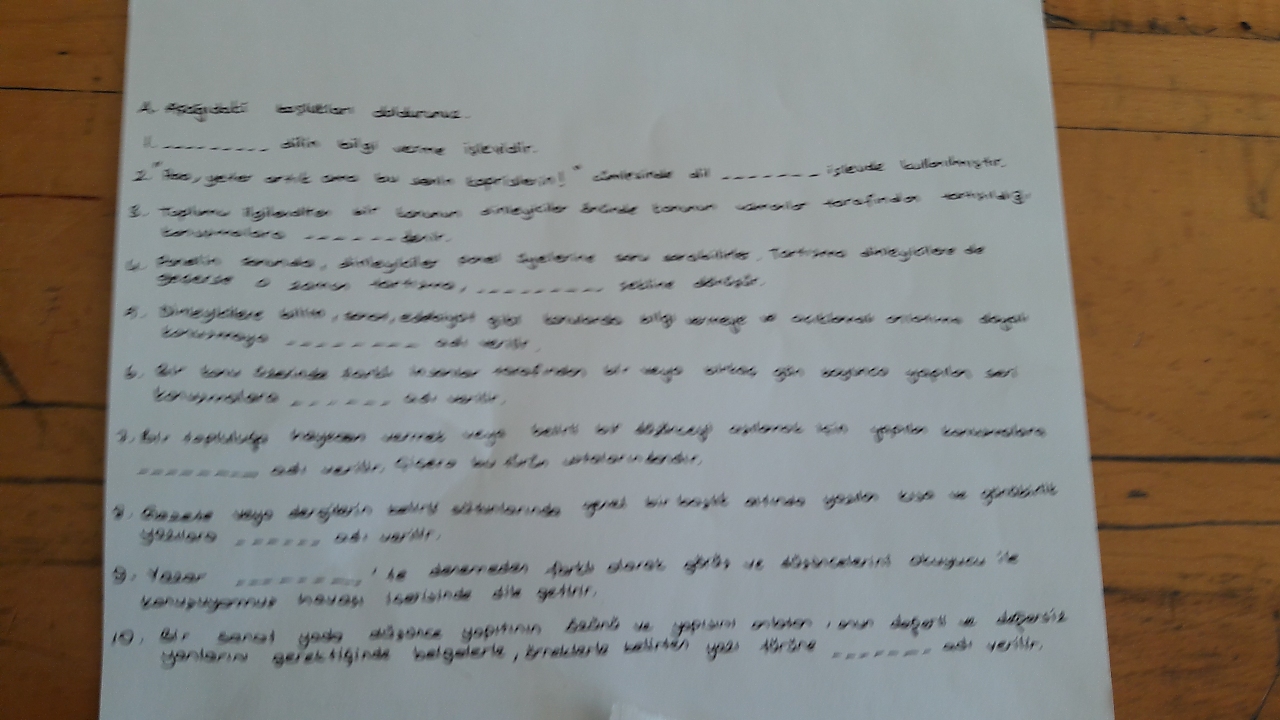 A. Aşağıdaki boşlukları doldurunuz.
1. _________ dilin bilgi verme işlevidir.
2. " yeter artık ama bu senin kaprislerin!" cümlesinde dil _______ işlevde kullanılmıştır.
3. Toplumu ilgilendiren bir konunun dinleyiciler önünde konunun uzmanlar tarafından tartışıldığı
konuşmalara ______ denir.
4. Panelin sonunda, dinleyiciler panel üyelerine soru sorabilirler. Tartışma dinleyicilere de
geçerse o zaman tartışma, _________ şekline dönüşür.
5. Dinleyicilere bilim, sanat, edebiyat gibi konularda bilgi vermeye ve açıklamalı anlatıma dayalı
konuşmaya _________ adı verilir.
6. Bir konu üzerinde farklı insanlar tarafından bir veya birkaç gün boyunca yapılan seri
konuşmalara ______ adı verilir.
7. Bir topluluğa heyecan vermek veya belirli bir düşünceyi aşılamak için yapılan konuşmalara
_________ adı verilir. Çiçero bu türün ustalarındandır.
8. Gazete veya dergilerin belirli sütunlarında genel bir başlık altında yazılan kısa ve günübirlik
yazılara ______ adı verilir.
9. Yazar _________'te denemeden farklı olarak görüş ve düşüncelerini okuyucu ile
konuşuyormuş havası içerisinde dile getirir.
10. Bir sanat yada düşünce yapıtının özünü ve yapısını anlatan, onun değerli ve değersiz
yanlarını gerektiğinde belgelerle, örneklerle belirten yazı türüne _______ adı verilir.